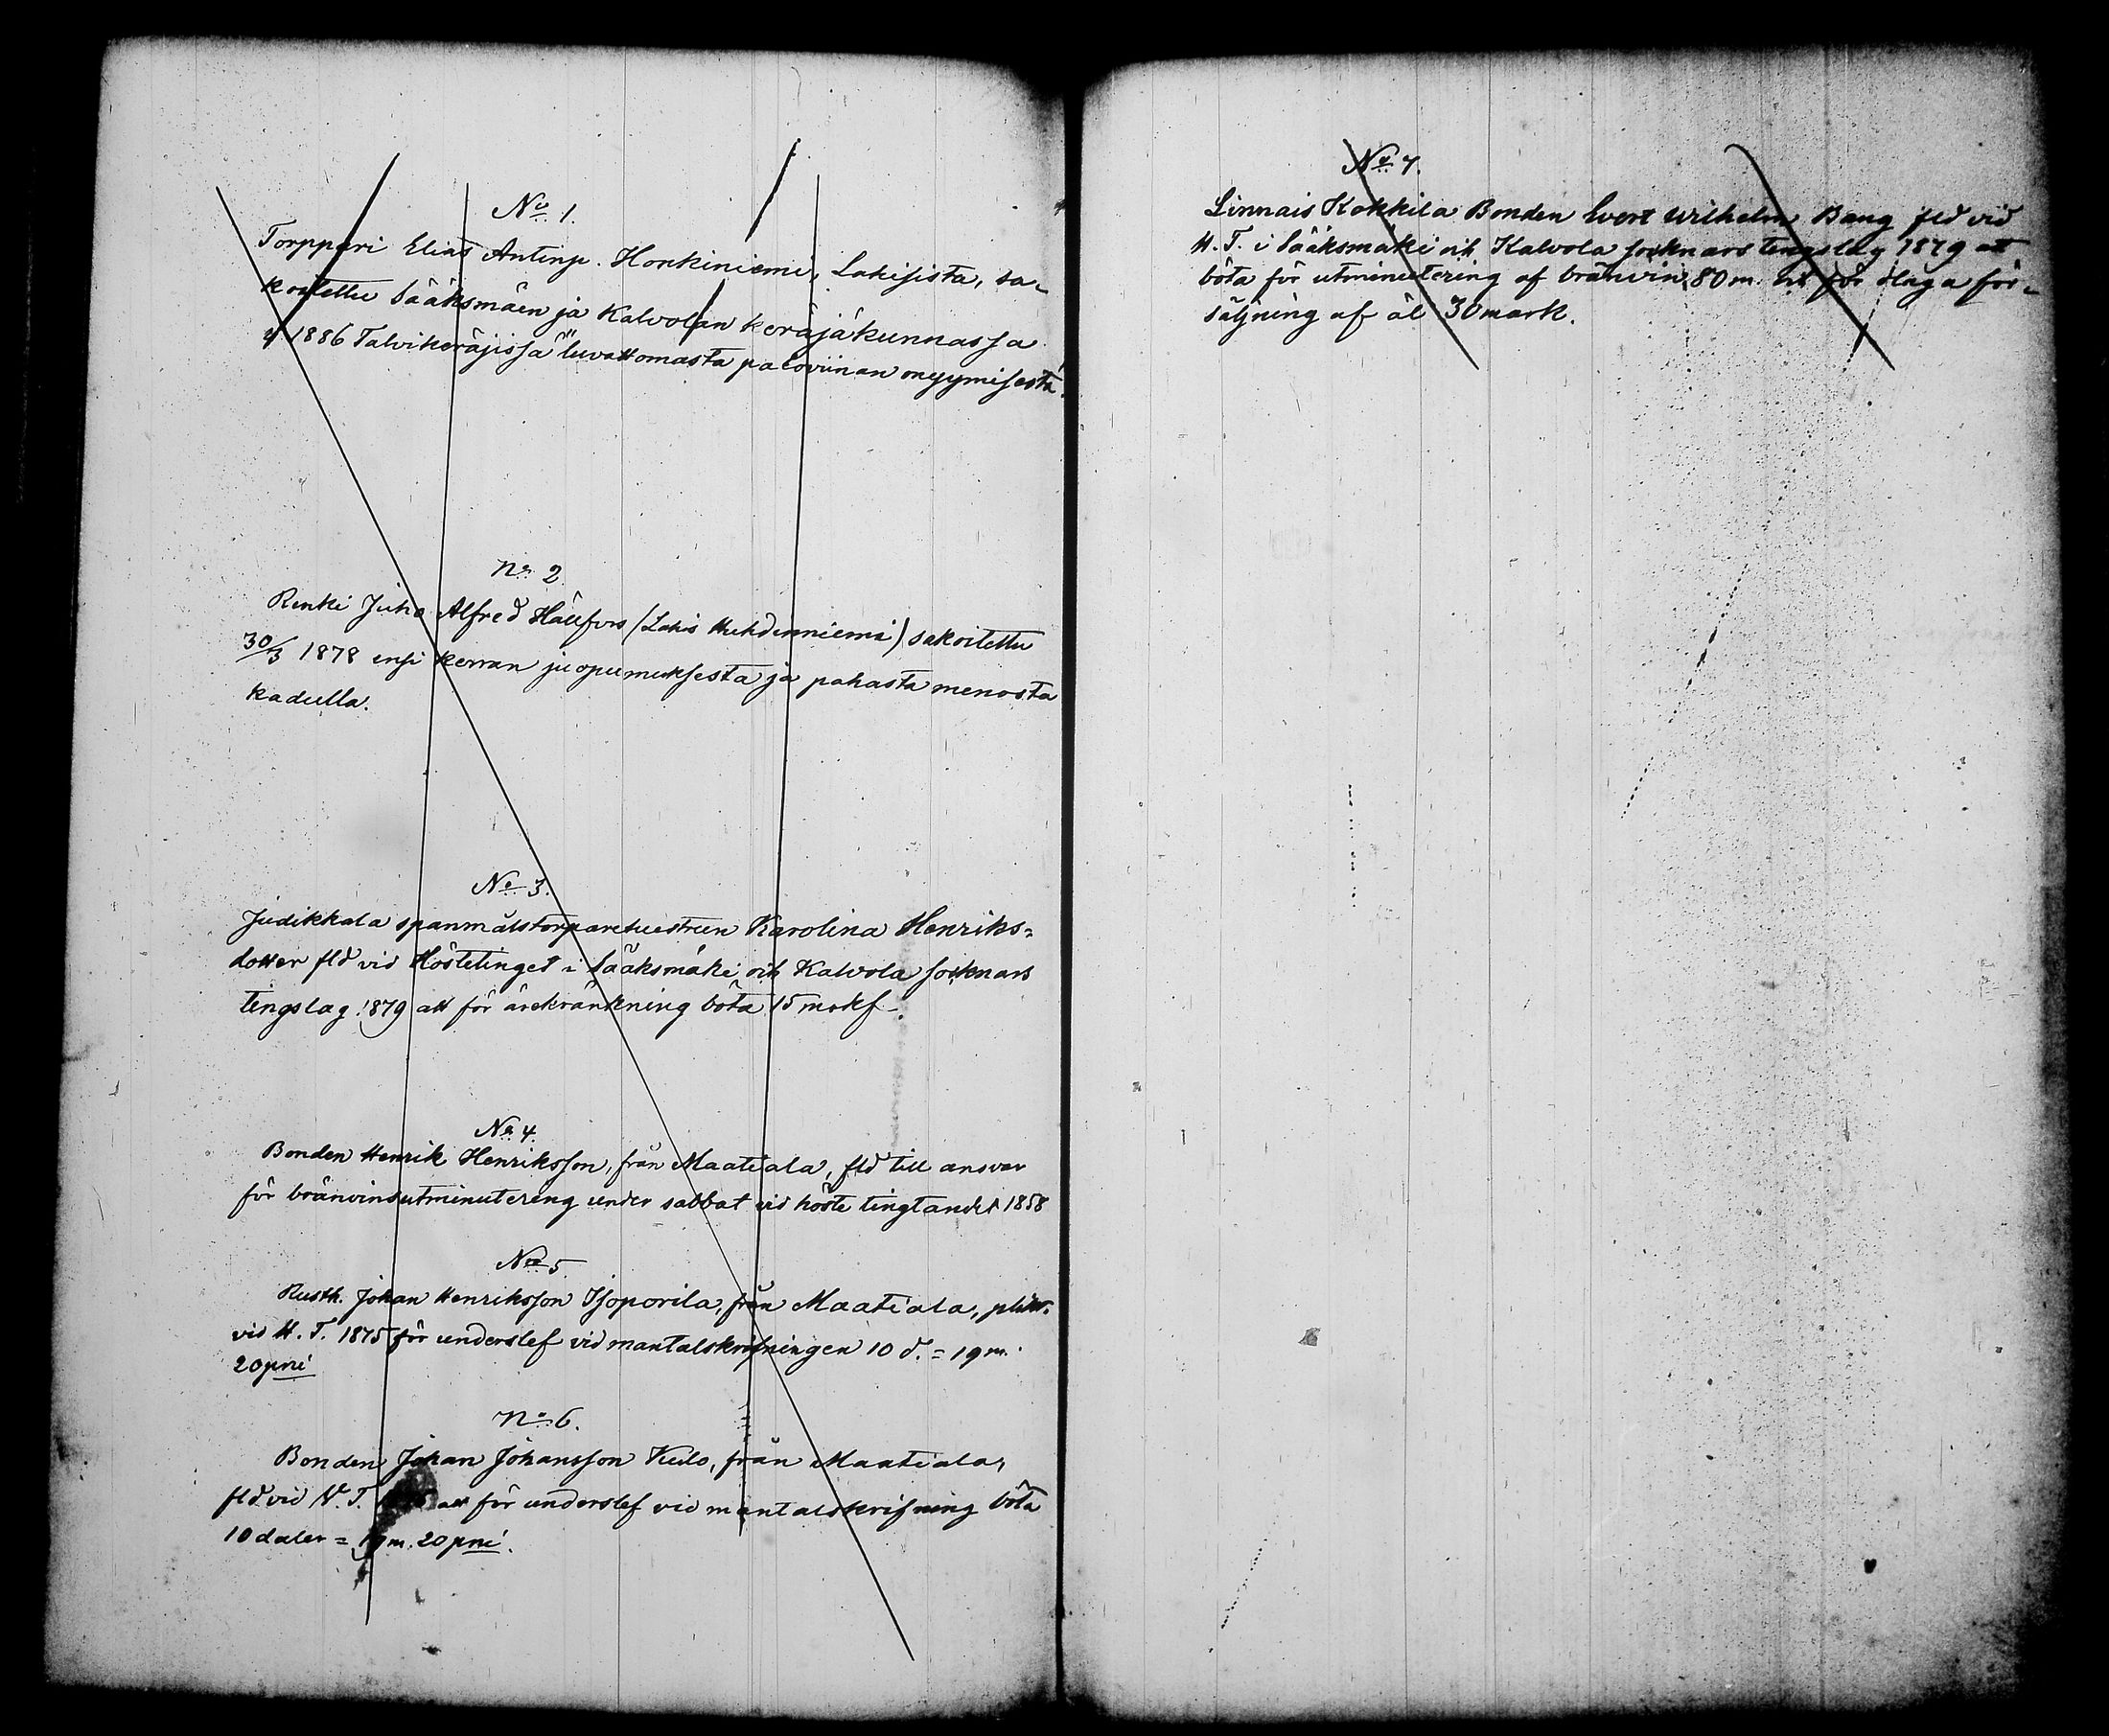 No 1.
Torppari Elias Antinp. Honkiniemi, Lahisista, sa-
koitettu Sääksmäen ja Kalvolan keräjäkunnassa
1886 Talvikeräjissä luvattomasta paloviinan myymisestä.
No 2
Renki Juho Alfred Hällfors (Lahis Huhdinniemi) sakoitettu
30/3 1878 ensi kerran juopumuksesta ja pahasta menosta
kadulla.
No 3.
Judikkala spanmålstorparehustrun Karolina Henriks=
dotter fld vid Höstetinget i Sääksmäki och Kalvola socknars
tingslag 1879 att för ärekränkning böta 15 mkf.
No 4.
Bonden Henrik Henriksson, från Maatiala, fld till ansvar
för bränvinsutminutering under sabbat vid höste tingtandet 1858
No 5
Rusth. Johan Henriksson Isoporila, från Maatiala, plikt.
vid H. T. 1875 för underslef vid mantalskrifningen 10 d. = 19 m.
20 pni
No 6.
Bonden Johan Johansson Keilo, från Maatiala,
fld vid V. T. att för underslef vid mantalskrifning böta
10 daler = 19 m. 20 pni.
No 7.
Linnais Kokkila Bonden Evert Wilhelm Bang fld vid
H. T. i Sääksmäki och Kalvola socknars tingslag 1879 att
böta för utminutering af bränvin 80 m. och för olaga för-
säljning af öl 30 mark.